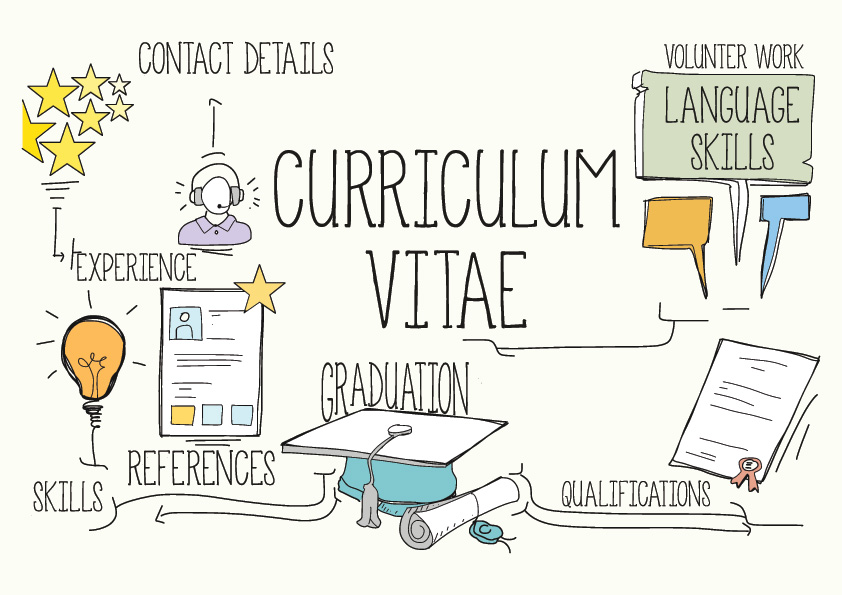 CONTACT DETAILS
VOLUNTER WORK
LANGUAGE
SKILLS
CURRICULUM
VITAE
EXPERIENCE
GRADUATION
REFERENCES
SKILLS
QUALIFICATIONS